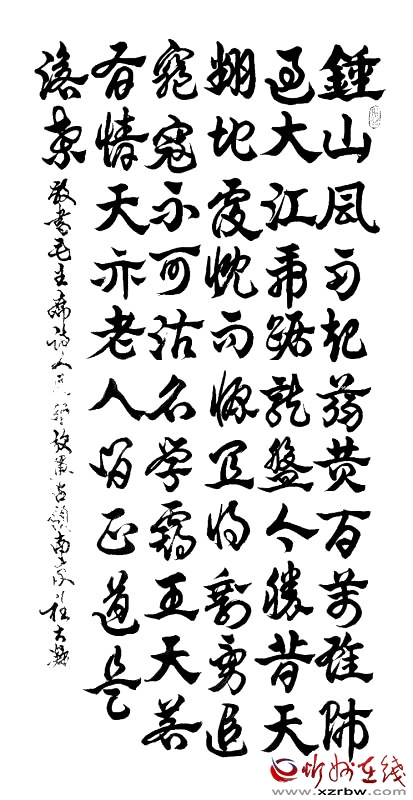 鍾山风雨起蒼黄百萬雄师
过大江虎踞龍盤今勝昔天
翻地覆慨而慷宜将剩勇追
穷寇不可沽名学霸王天若
有情天亦老人间正道是
滄桑
敬書毛主席詩人民解放軍占領南京
忻州在线
www.xzrbw.com